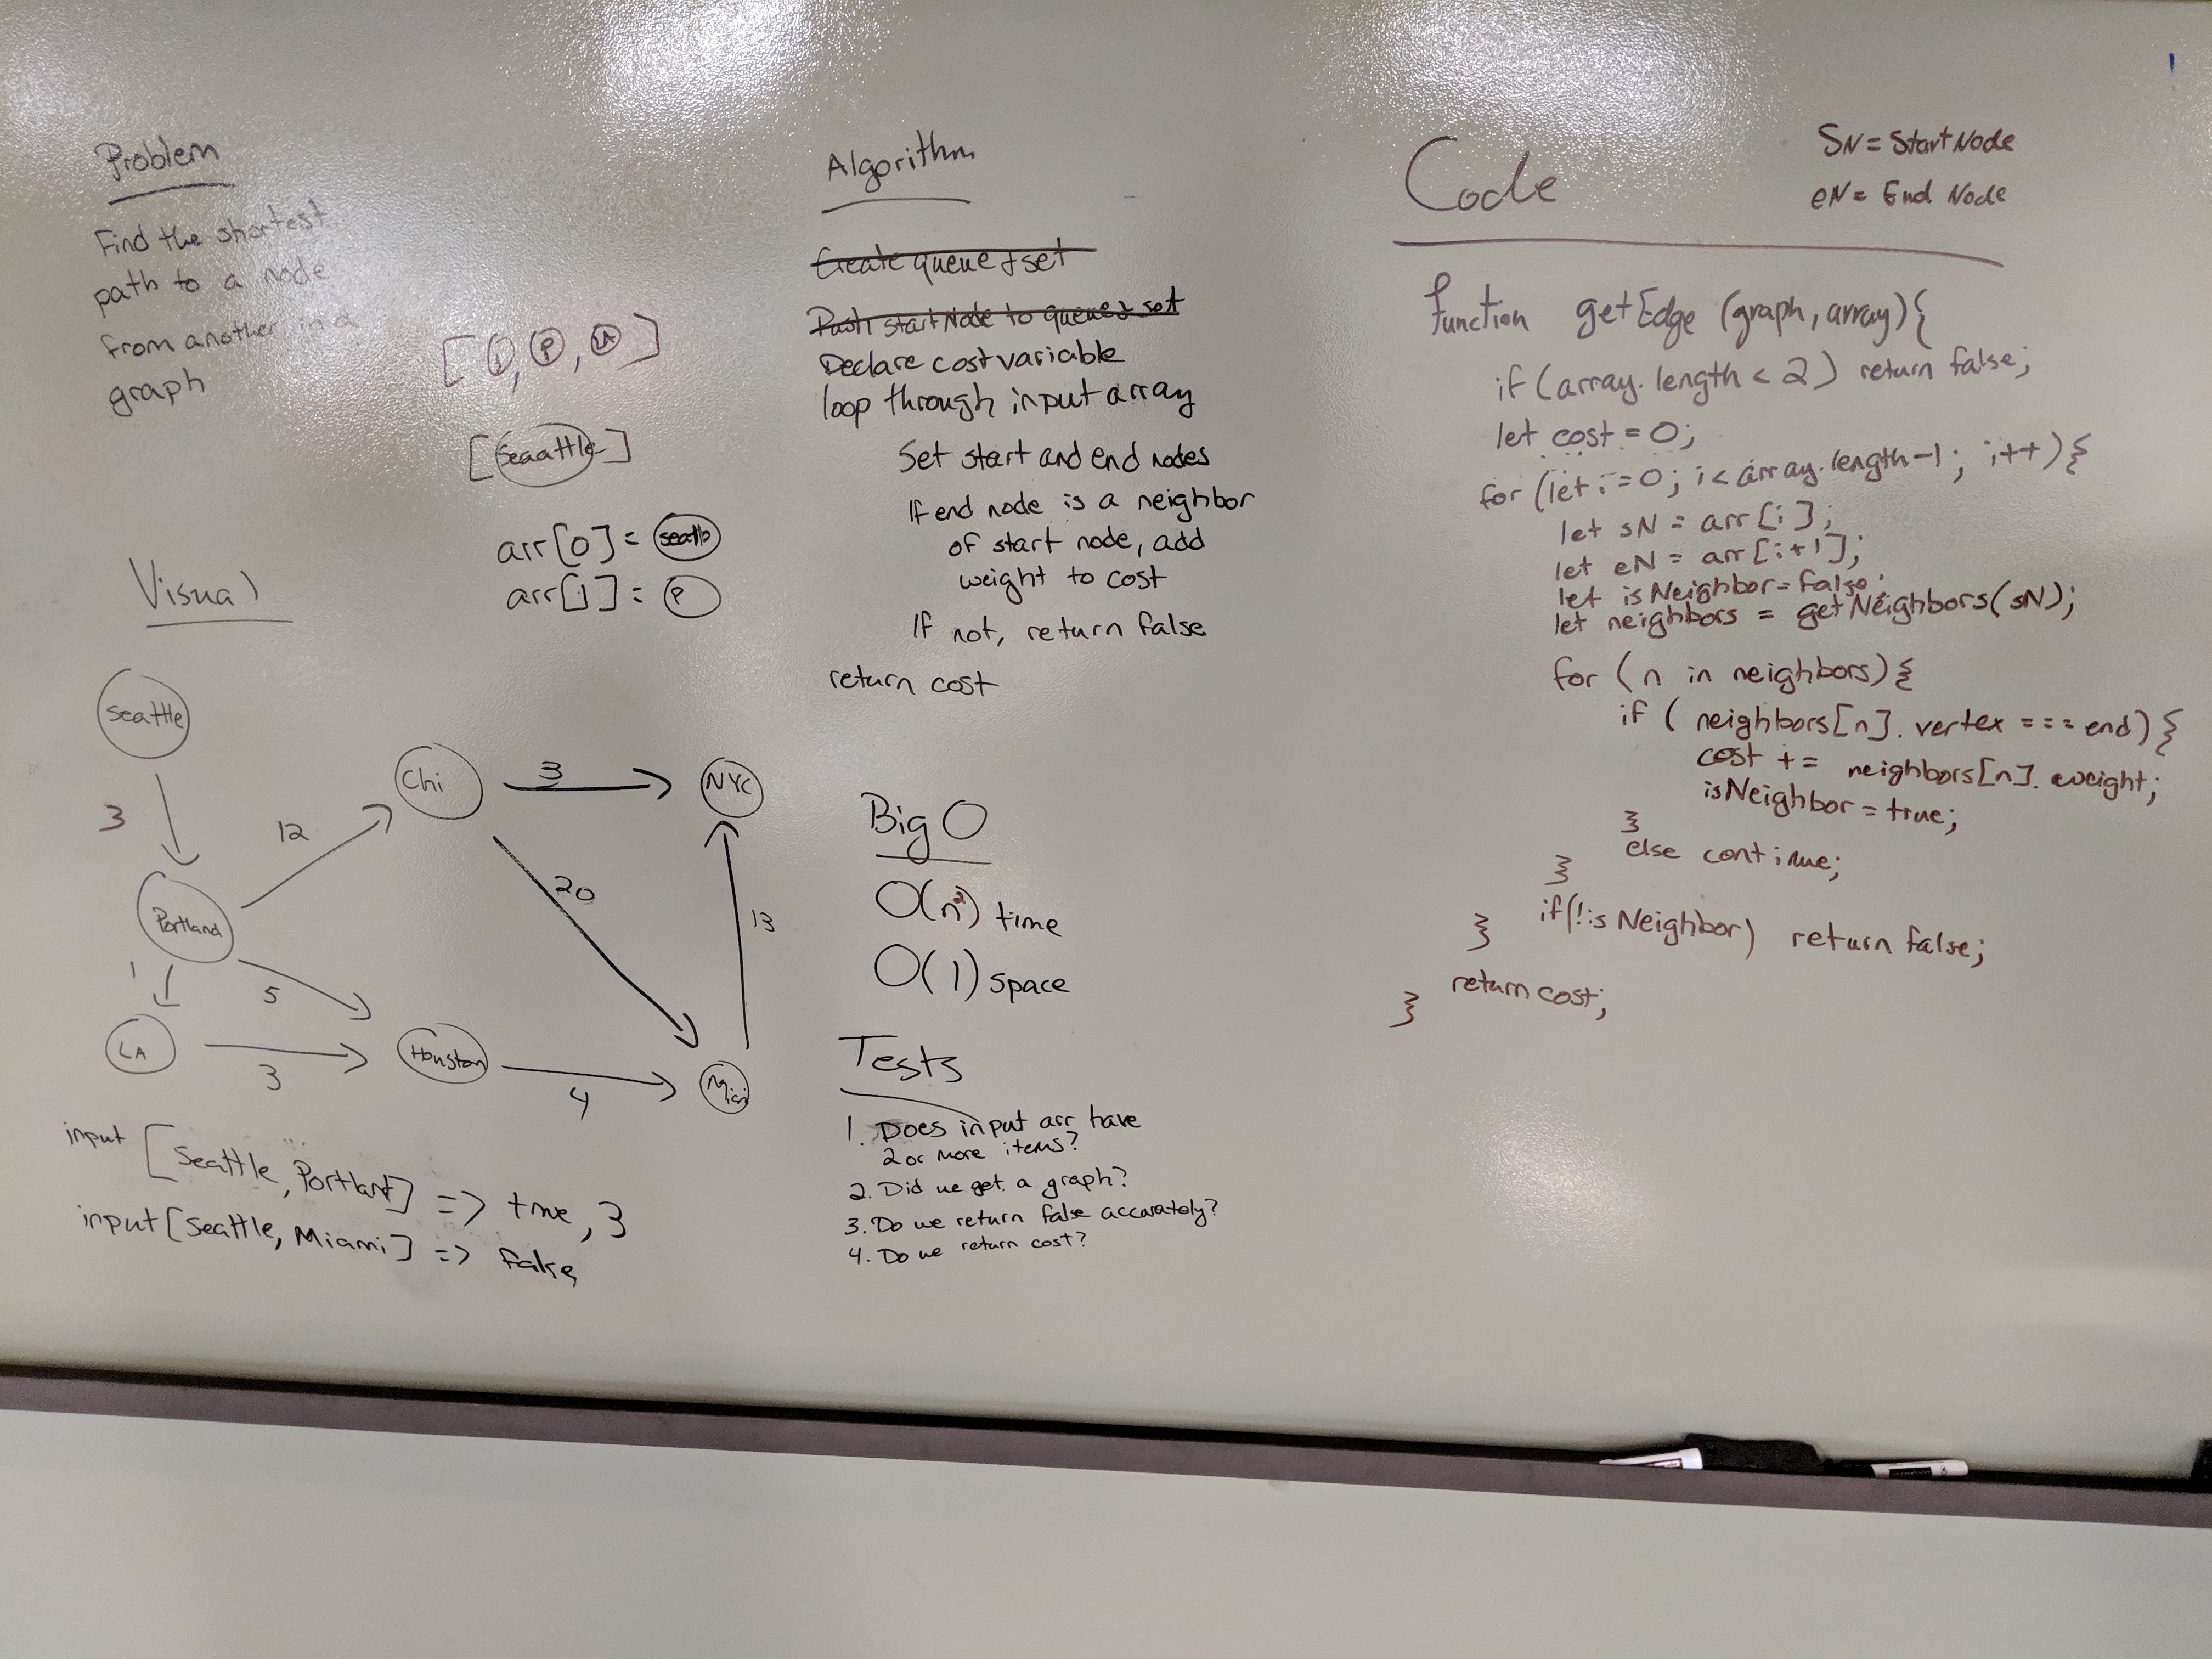 Problem
Find the shortest
path to a node
from another in a
graph
[ , P, LA ]
[Seaattle]
arr[0] = seattle
arr[1] = P
Visual
Seattle
3
Portland
12
Chi
3
NYC
20
13
1
5
LA
3
Houston
4
Miami
input [Seattle, Portland] => true, 3
input [Seattle, Miami] => false
Algorithm
Create queue + set
Push startNode to queue + set
Declare cost variable
loop through input array
Set start and end nodes
If end node is a neighbor
of start node, add
weight to cost
If not, return false
return cost
Big O
O(n²) time
O(1) space
Tests
1. Does input arr have
2 or more items?
2. Did we get a graph?
3. Do we return false accurately?
4. Do we return cost?
Code
SN = Start Node
eN = End Node
function getEdge (graph, array){
if (array.length < 2) return false;
let cost = 0;
for (let i = 0; i < array.length-1; i++){
let sN = arr[i];
let eN = arr[i+1];
let isNeighbor = false;
let neighbors = getNeighbors(sN);
for (n in neighbors){
if ( neighbors[n].vertex === end){
cost += neighbors[n].weight;
isNeighbor = true;
}
else continue;
}
if(!isNeighbor) return false;
}
return cost;
}